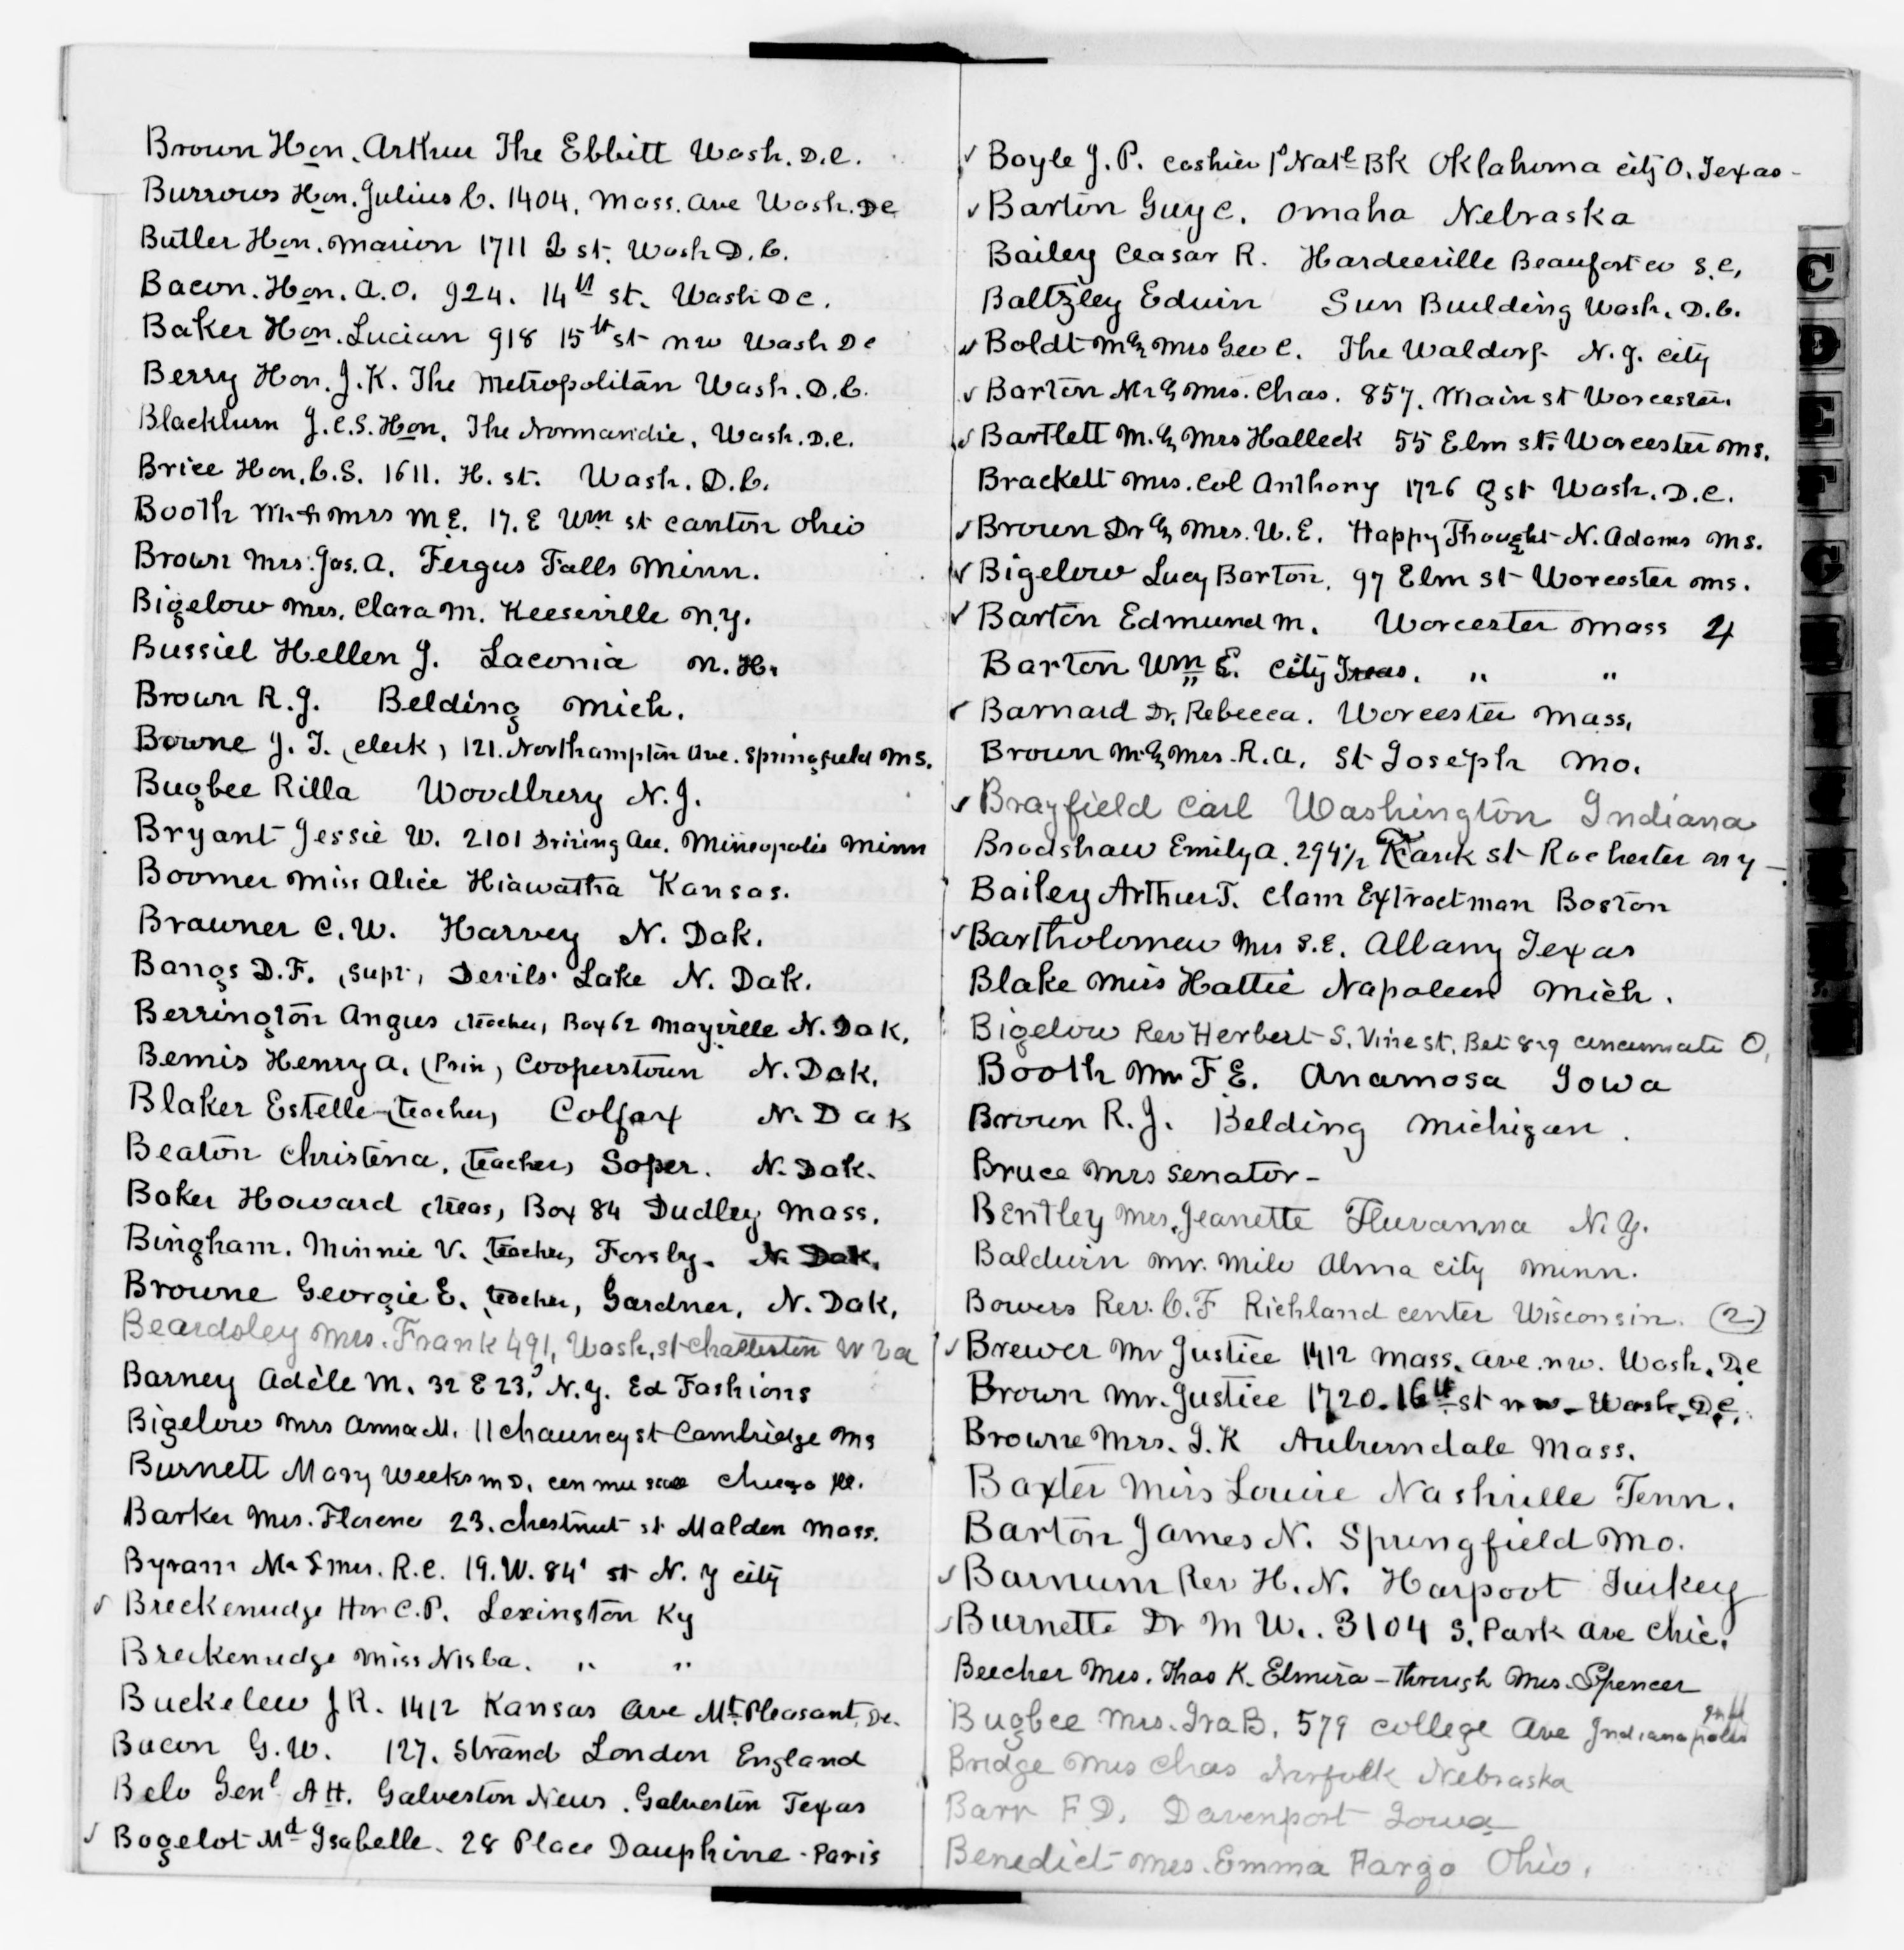 Brown Hon. Arthur The Ebbitt Wash. D.C.
Burrows Hon. Julius C. 1404. Mass. Ave Wash. DC
Butler Hon. Marion 1711 Q st. Wash D.C.
Bacon. Hon. A.O. 924. 14th st. Wash DC.
Baker Hon. Lucian 918 15th st nw Wash DC
Berry Hon. J.K. The Metropolitan Wash. D.C.
Blackburn J.C.S. Hon. The Normandie, Wash. D.C.
Brice Hon. C.S. 1611. H. st. Wash. D.C.
Booth Mr & Mrs M E. 17. E Wm st Canton Ohio
Brown Mrs. Jas. A. Fergus Falls Minn.
Bigelow Mrs. Clara M. Keeseville N.Y.
Bussiel Hellen J. Laconia N.H.
Brown R.J. Belding Mich.
Bowne J. T. (clerk) 121. Northampton Ave. Springfield Ms.
Bugbee Rilla Woodbury N.J.
Bryant Jessie W. 2101 Driving Ave. Mineopolis Minn
Boomer Miss Alice Hiawatha Kansas.
Brawner C.W. Harvey N. Dak.
Bangs D.F. (Supt) Devils Lake N. Dak.
Berrington Angus (teacher) Box 62 Mayville N. Dak.
Bemis Henry A. (Prin) Cooperstown N. Dak.
Blaker Estelle (teacher) Colfax N. Dak
Beaton Christina, (teacher) Soper. N. Dak.
Baker Howard (treas) Box 84 Dudley Mass.
Bingham. Minnie V. teacher, Forsby. N. Dak.
Browne Georgie E. teacher, Gardner, N. Dak.
Beardsley Mrs. Frank 491, Wash. st Charleston W Va
Barney Adèle M. 32 E 23. N.Y. Ed Fashions
Bigelow Mrs Anna M. 11 Chauncy st Cambridge Ms
Burnett Mary Weeks MD. Cen Mu Chicago Ill.
Barker Mrs. Florence 23. Chestnut st Malden Mass.
Byram Mr & Mrs. R.C. 19. W. 84' st N. Y city
✓ Breckenridge Hon C.P. Lexington Ky
Breckenridge Miss Nisba. " "
Buckelew J R. 1412 Kansas Ave Mt. Pleasant, DC.
Bacon G.W. 127. Strand London England
Belo Genl A H. Galveston News. Galveston Texas
✓ Bogelot Md Isabelle. 28 Place Dauphine - Paris
✓ Boyle J. P. Cashier 1st Natl BK Oklahoma city O. Texas -
✓ Barton Guy C. Omaha Nebraska
Bailey Ceasar R. Hardeeville Beaufort co S.C.
Baltzley Edwin Sun Building Wash. D.C.
✓ Boldt Mr & Mrs Geo C. The Waldorf N.Y. city
✓ Barton Mr & Mrs. Chas. 857. Main st Worcester.
✓ Bartlett M. & Mrs Halleck 55 Elm st. Worcester Ms.
Brackett Mrs. Col Anthony 1726 Q st Wash. D.C.
✓ Brown Dr & Mrs. W.E. Happy Thought N. Adams Ms.
✓ Bigelow Lucy Barton. 97 Elm st Worcester Ms.
✓ Barton Edmund M. Worcester Mass 4
Barton Wm E. City Treas. " "
✓ Barnard Dr. Rebecca. Worcester Mass.
Brown Mr & Mrs. R.A. St Joseph Mo.
✓ Brayfield Carl Washington Indiana
Bradshaw Emily A. 294½ Park st Rochester NY -
Bailey Arthur T. Clam Extract man Boston
✓ Bartholomew Mrs S.E. Albany Texas
Blake Miss Hattie Napoleon Mich.
Bigelow Rev Herbert S. Vine st. Bet 8 & 9 Cincinnati O.
Booth Mr F E. Anamosa Iowa
Brown R. J. Belding Michigan.
Bruce Mrs Senator -
Bentley Mrs. Jeanette Fluvanna N.Y.
Baldwin Mr. Milo Alma city Minn.
Bowers Rev. C. F Richland center Wisconsin. (2)
✓ Brewer Mr Justice 1412 Mass. Ave. nw. Wash. DC
Brown Mr. Justice 1720. 16th st nw - Wash. DC.
Browne Mrs. J. K Auburndale Mass.
Baxter Miss Louise Nashville Tenn.
Barton James N. Springfield Mo.
✓ Barnum Rev H.N. Harpoot Turkey
✓ Burnette Dr M W. 3104 S. Park Ave Chic.
Beecher Mrs. Thos K. Elmira - through Mrs. Spencer
Bugbee Mrs. Ira B. 579 College Ave Indianapolis
Bridge Mrs Chas Norfolk Nebraska
Barr F.D. Davenport Iowa
Benedict Mrs. Emma Fargo Ohio.
C
D
E
F
G